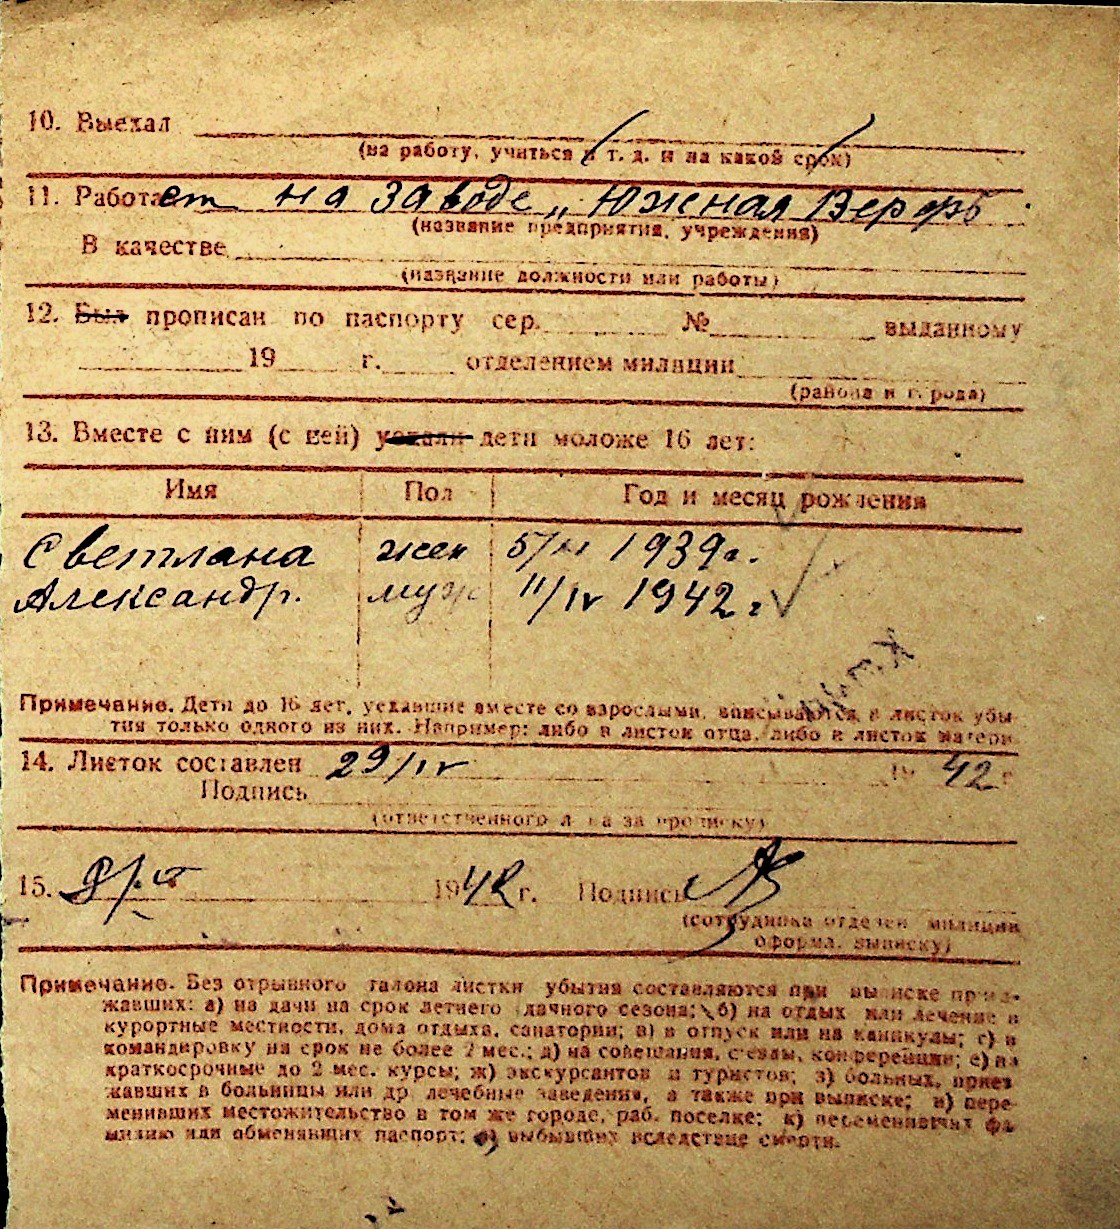 10. Выехал
(на работу, учиться и т. д. и на какой срок)
11. Работает на заводе „Южная Верфь
(название предприятия, учреждения)
В качестве
(название должности или работы)
12. Был прописан по паспорту сер. № выданному
19 г. отделением милиции
(района и города)
13. Вместе с ним (с ней) уехали дети моложе 16 лет:
Имя Пол Год и месяц рождения
Светлана жен 5/ 1939 г.
Александр. муж 11/IV 1942 г
Примечание. Дети до 16 лет, уехавшие вместе со взрослыми, вписываются в листок убы-
тия только одного из них. Например: либо в листок отца, либо в листок матери.
14. Листок составлен 29/IV 19 42 г
Подпись
(ответственного лица за прописку)
15. 1942 г. Подпись
(сотрудника отделен. милиции
оформл. выписку)
Примечание. Без отрывного талона листки убытия составляются при выписке приез-
жавших: а) на дачи на срок летнего дачного сезона; б) на отдых или лечение в
курортные местности, дома отдыха, санатории; в) в отпуск или на каникулы; г) в
командировку на срок не более 2 мес.; д) на совещания, съезды, конференции; е) на
краткосрочные до 2 мес. курсы; ж) экскурсантов и туристов; з) больных, приез
жавших в больницы или др лечебные заведения, а также при выписке; и) пере-
менивших местожительство в том же городе, раб. поселке; к) переменивших фа
милию или обменявших паспорт; л) выбывших вследствие смерти.